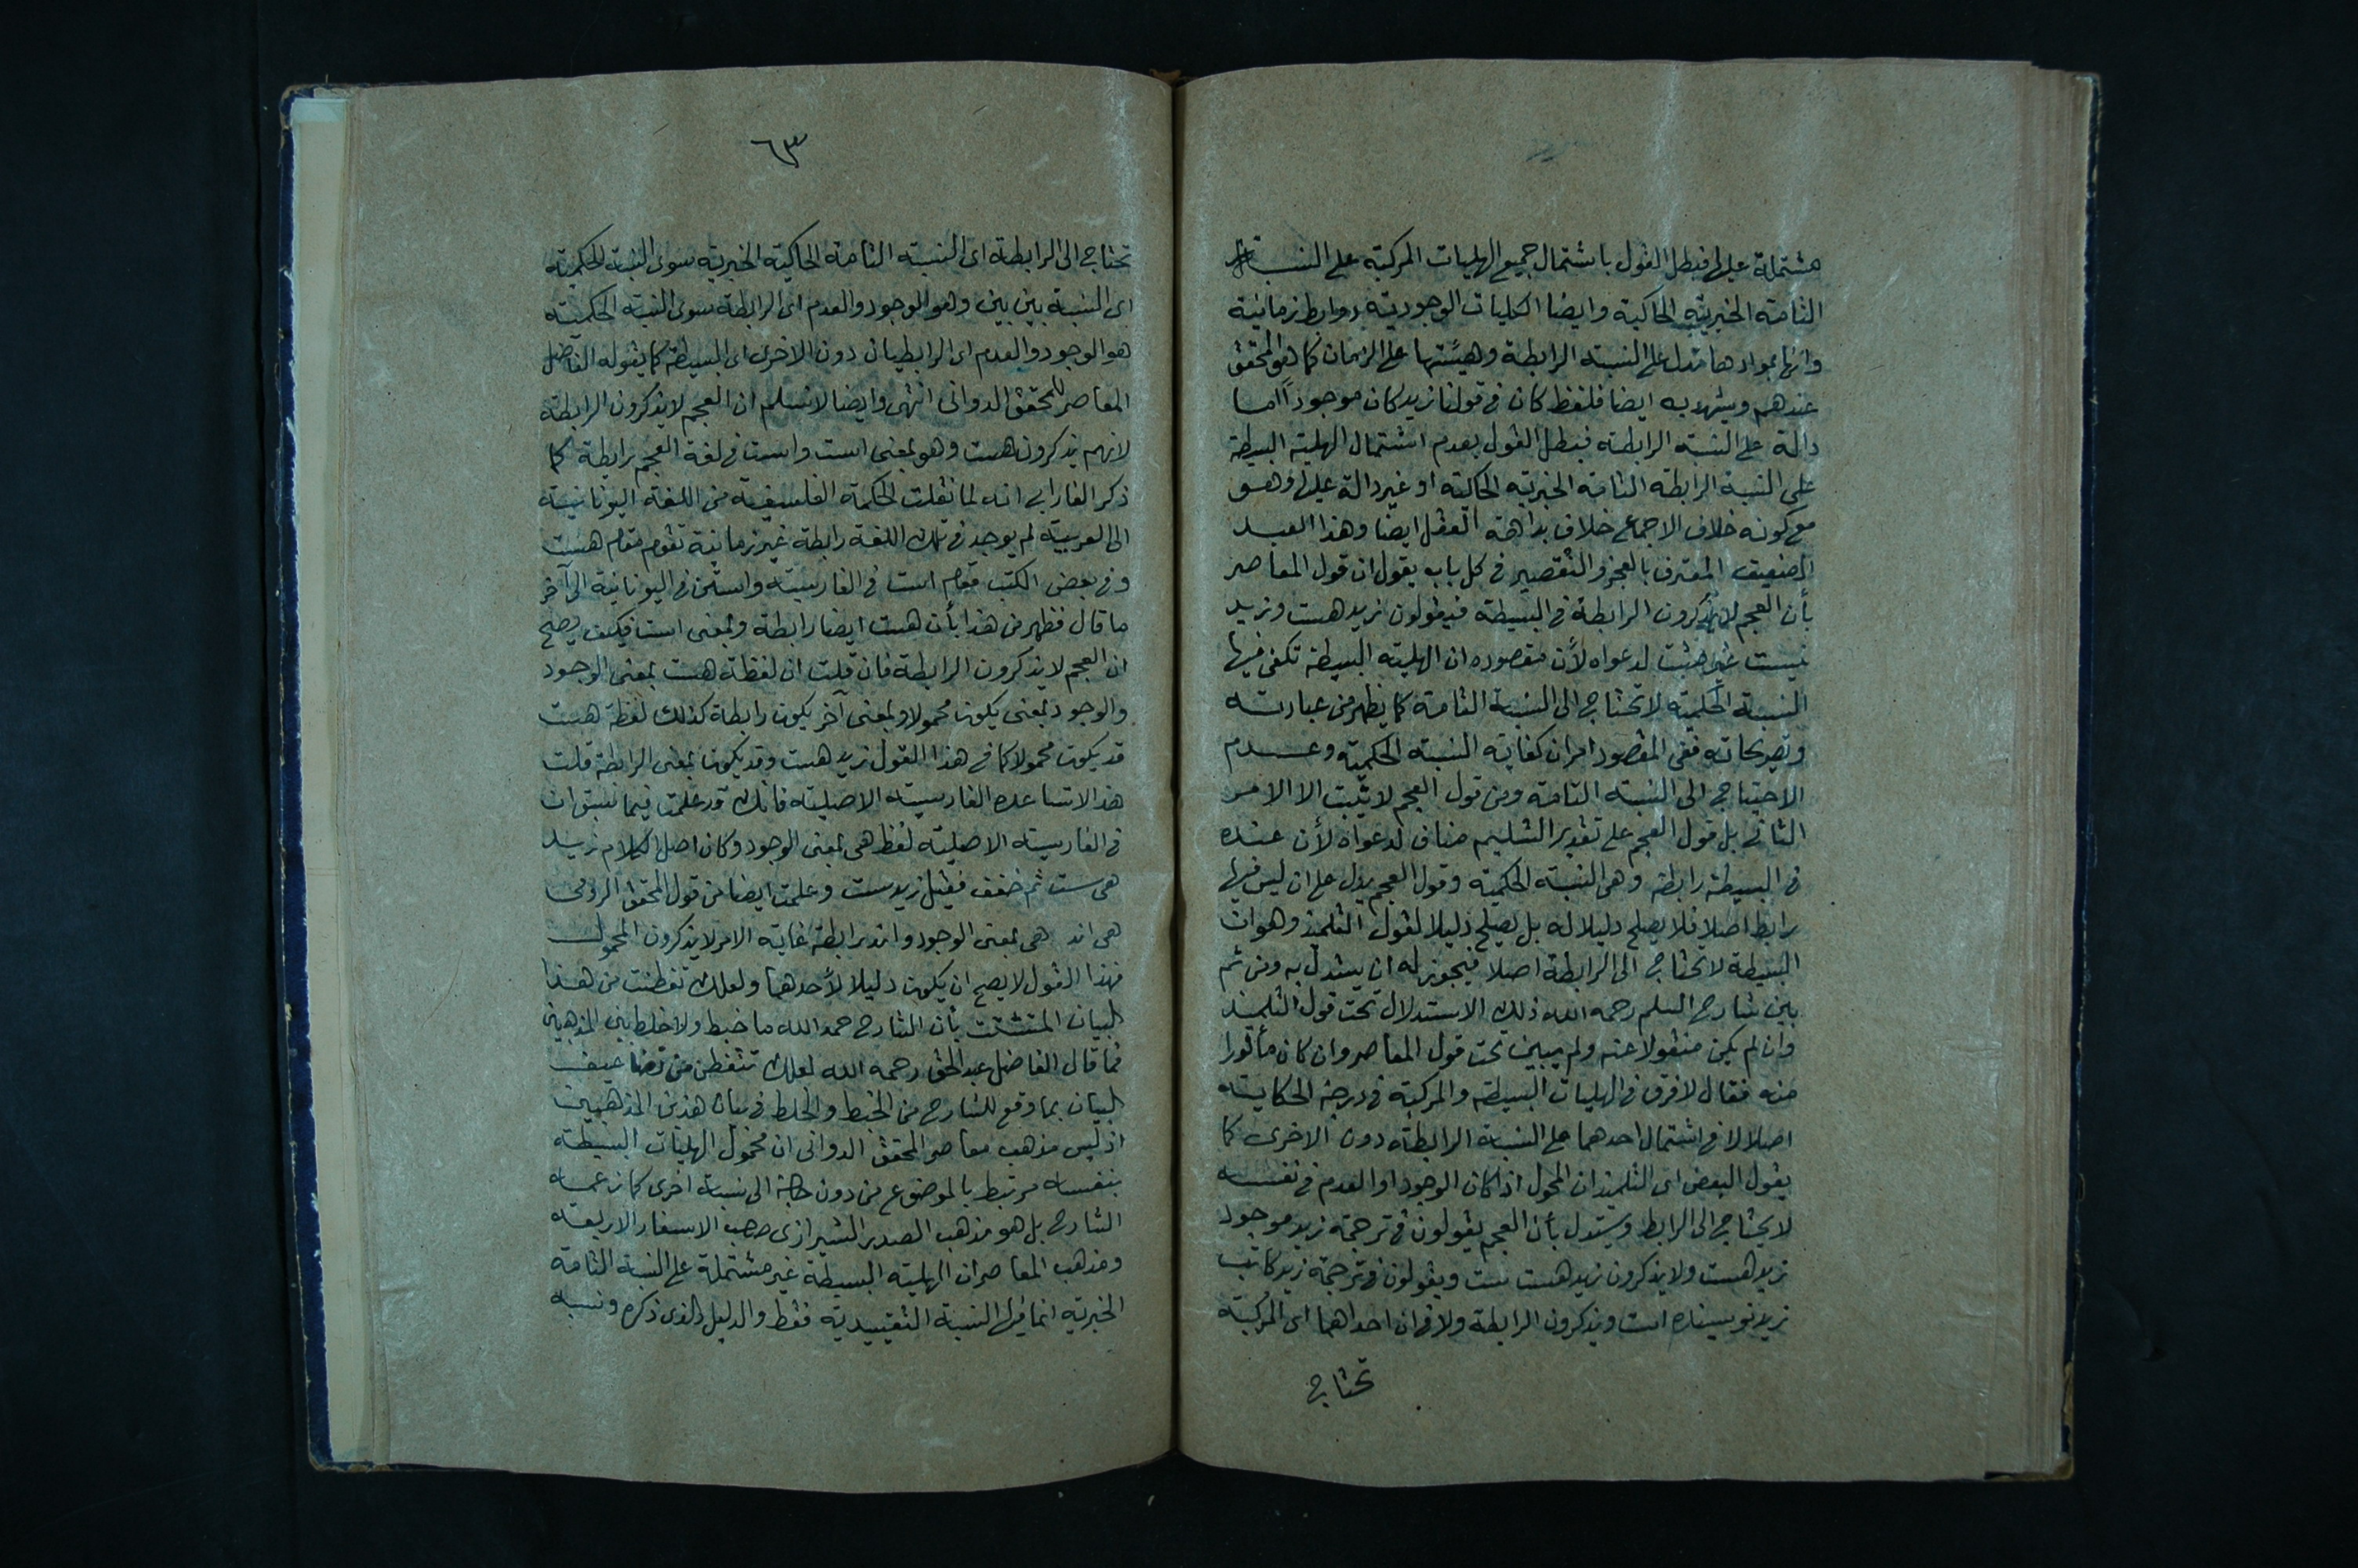 مشتملة عليها فبطل القول باشتمال جميع الهليات المركبة على النسبة
التامة الخبرية الحاكية وايضا الكليات الوجودية روابط زمانية
وانها بموادها تدل على النسبة الرابطة وهيئتها على الزمان كما هو المحقق
عندهم ويشهد به ايضا فلفظ كان في قولنا زيد كان موجودًا اما
دالة على النسبة الرابطة فبطل القول بعدم اشتمال الهلية البسيطة
على النسبة الرابطة التامة الخبرية الحاكية او غير دالة عليها وهو
مع كونه خلاف الاجماع خلاف بداهة العقل ايضا وهذا العبد
الضعيف المعترف بالعجز والتقصير في كل باب يقول ان قول المعاصر
بأن العجم لا يذكرون الرابطة في البسيطة فيقولون زيد هست وزيد
نيست غير مثبت لدعواه لأن مقصوده ان الهلية البسيطة تكفى فيها
النسبة الحكمية لا تحتاج الى النسبة التامة كما يظهر من عبارته
وتصريحاته ففى المقصود امران كفاية النسبة الحكمية وعدم
الاحتياج الى النسبة التامة ومن قول العجم لا يثبت الا الامر
الثانى بل قول العجم على تقدير التسليم مناف لدعواه لأن عنده
في البسيطة رابطة وهى النسبة الحكمية وقول العجم يدل على ان ليس فيها
رابط اصلا فلا يصلح دليلا له بل يصلح دليلا لقول التلميذ وهو ان
البسيطة لا تحتاج الى الرابطة اصلا فيجوز له ان يستدل به ومن ثم
بين شارح السلم رحمه الله ذلك الاستدلال تحت قول التلميذ
وان لم يكن منقولا عنه ولم يبين تحت قول المعاصر وان كان مأثورا
منه فقال لا فرق في الهليات البسيطة والمركبة في درجة الحكاية
اصلا لا في اشتمال احدهما على النسبة الرابطة دون الاخرى كما
يقول البعض اى التلميذ ان المحمول اذا كان الوجود او العدم في نفسه
لا يحتاج الى الرابط ويستدل بأن العجم يقولون في ترجمة زيد موجود
زيد هست ولا يذكرون زيد هست ست ويقولون في ترجمة زيد كاتب
زيد نويسنده است ويذكرون الرابطة ولا في ان احداهما اى المركبة
تحتاج
٦٣
تحتاج الى الرابطة اى النسبة التامة الحاكية الخبرية سوى النسبة الحكمية
اى النسبة بين بين وهو الوجود والعدم اى الرابطة سوى النسبة الحكمية
هو الوجود والعدم اى الرابطيان دون الاخرى اى البسيطة كما يقوله الفاضل
المعاصر للمحقق الدوانى انتهى وايضا لا نسلم ان العجم لا يذكرون الرابطة
لانهم يذكرون هست وهو بمعنى است واست في لغة العجم رابطة كما
ذكر الفارابى انه لما نقلت الحكمة الفلسفية من اللغة اليونانية
الى العربية لم يوجد في تلك اللغة رابطة غير زمانية تقوم مقام هست
وفى بعض الكتب مقام است في الفارسية واستن في اليونانية الى آخر
ما قال فظهر من هذا بأن هست ايضا رابطة وبمعنى است فكيف يصلح
ان العجم لا يذكرون الرابطة فان قلت ان لفظة هست بمعنى الوجود
والوجود بمعنى يكون محمولا وبمعنى آخر يكون رابطة كذلك لفظة هست
قد يكون محمولا كما في هذا القول زيد هست وقد يكون بمعنى الرابطة قلت
هذا لا تساعده الفارسية الاصلية فانك قد علمت فيما سبق ان
في الفارسية الاصلية لفظ هى بمعنى الوجود وكان اصل الكلام زيد
هى ست ثم خفف فقيل زيد ست وعلمت ايضا من قول المحقق الرومى
هى اند هى بمعنى الوجود واند رابطة غاية الامر لا يذكرون المحمول
فهذا القول لا يصح ان يكون دليلا لأحدهما ولعلك تفطنت من هذا
البيان المتشتت بأن الشارح حمد الله ما خبط ولا خلط بين المذهبين
فما قال الفاضل عبد الحق رحمه الله لعلك تتفطن من تضاعيف
البيان بما وقع للشارح من الخبط والخلط في بيان هذين المذهبين
اذ ليس مذهب معاصر المحقق الدوانى ان محمول الهليات البسيطة
بنفسه مرتبط بالموضوع من دون حاجة الى نسبة اخرى كما زعمه
الشارح بل هو مذهب الصدر الشيرازى صاحب الاسفار الاربعة
ومذهب المعاصر ان الهلية البسيطة غير مشتملة على النسبة التامة
الخبرية انما فيها النسبة التقييدية فقط والدليل الذى ذكره ونسبه